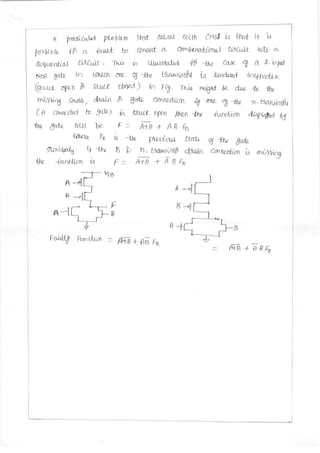 A particular problem that arises with CMOS is that it is
possible for a fault to convert a combinational circuit into a
sequential circuit. This is illustrated for the case of a 2-input
NOR gate in which one of the transistors is rendered ineffective
(stuck open or stuck closed) in Fig. This might be due to the
missing source, drain or gate connection. If one of the n-transistors
(A connected to gate) is stuck open then the function displayed by
the gate will be F = A+B + A B Fn
where Fn is the previous state of the gate
Similarly if the B n-transistor drain connection is missing
the function is F = A+B + A B Fn
VDD
A
B
F
A
B
A
B
A
B
Faulty Function = A+B + AB Fn
= A+B + A B Fn